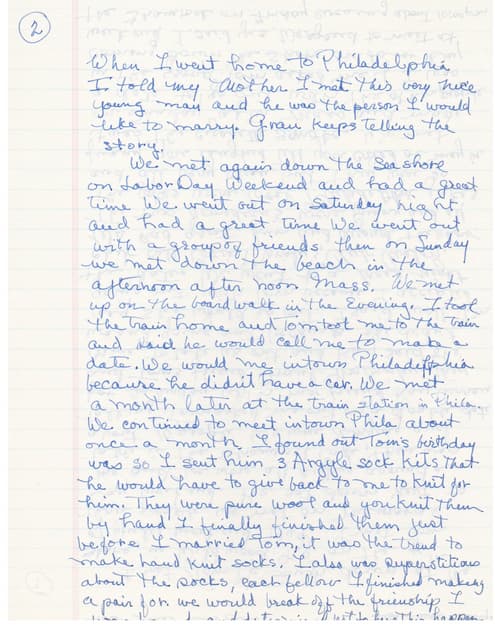 2
When I went home to Philadelphia
I told my Mother I met this very nice
young man and he was the person I would
like to marry. Gran keeps telling the
story.
We met again down the sea shore
on Labor Day Weekend and had a great
time We went out on Saturday night
and had a great time We went out
with a group of friends, then on Sunday
we met down the beach in the
afternoon after noon Mass. We met
up on the boardwalk in the Evening. I took
the train home and Tom took me to the train
and said he would call me to make a
date. We would me intown Philadelphia
because he didn't have a car. We met
a month later at the train station in Phila.
We continued to meet intown Phila, about
once a month I found out Tom's birthday
was so I sent him 3 Argyle sock kits that
he would have to give back to me to knit for
him. They were pure wool and you knit them
by hand I finally finished them just
before I married Tom, it was the trend to
make hand knit socks. I also was superstitious
about the socks, each fellow I finished making
a pair for we would break off the friendship I